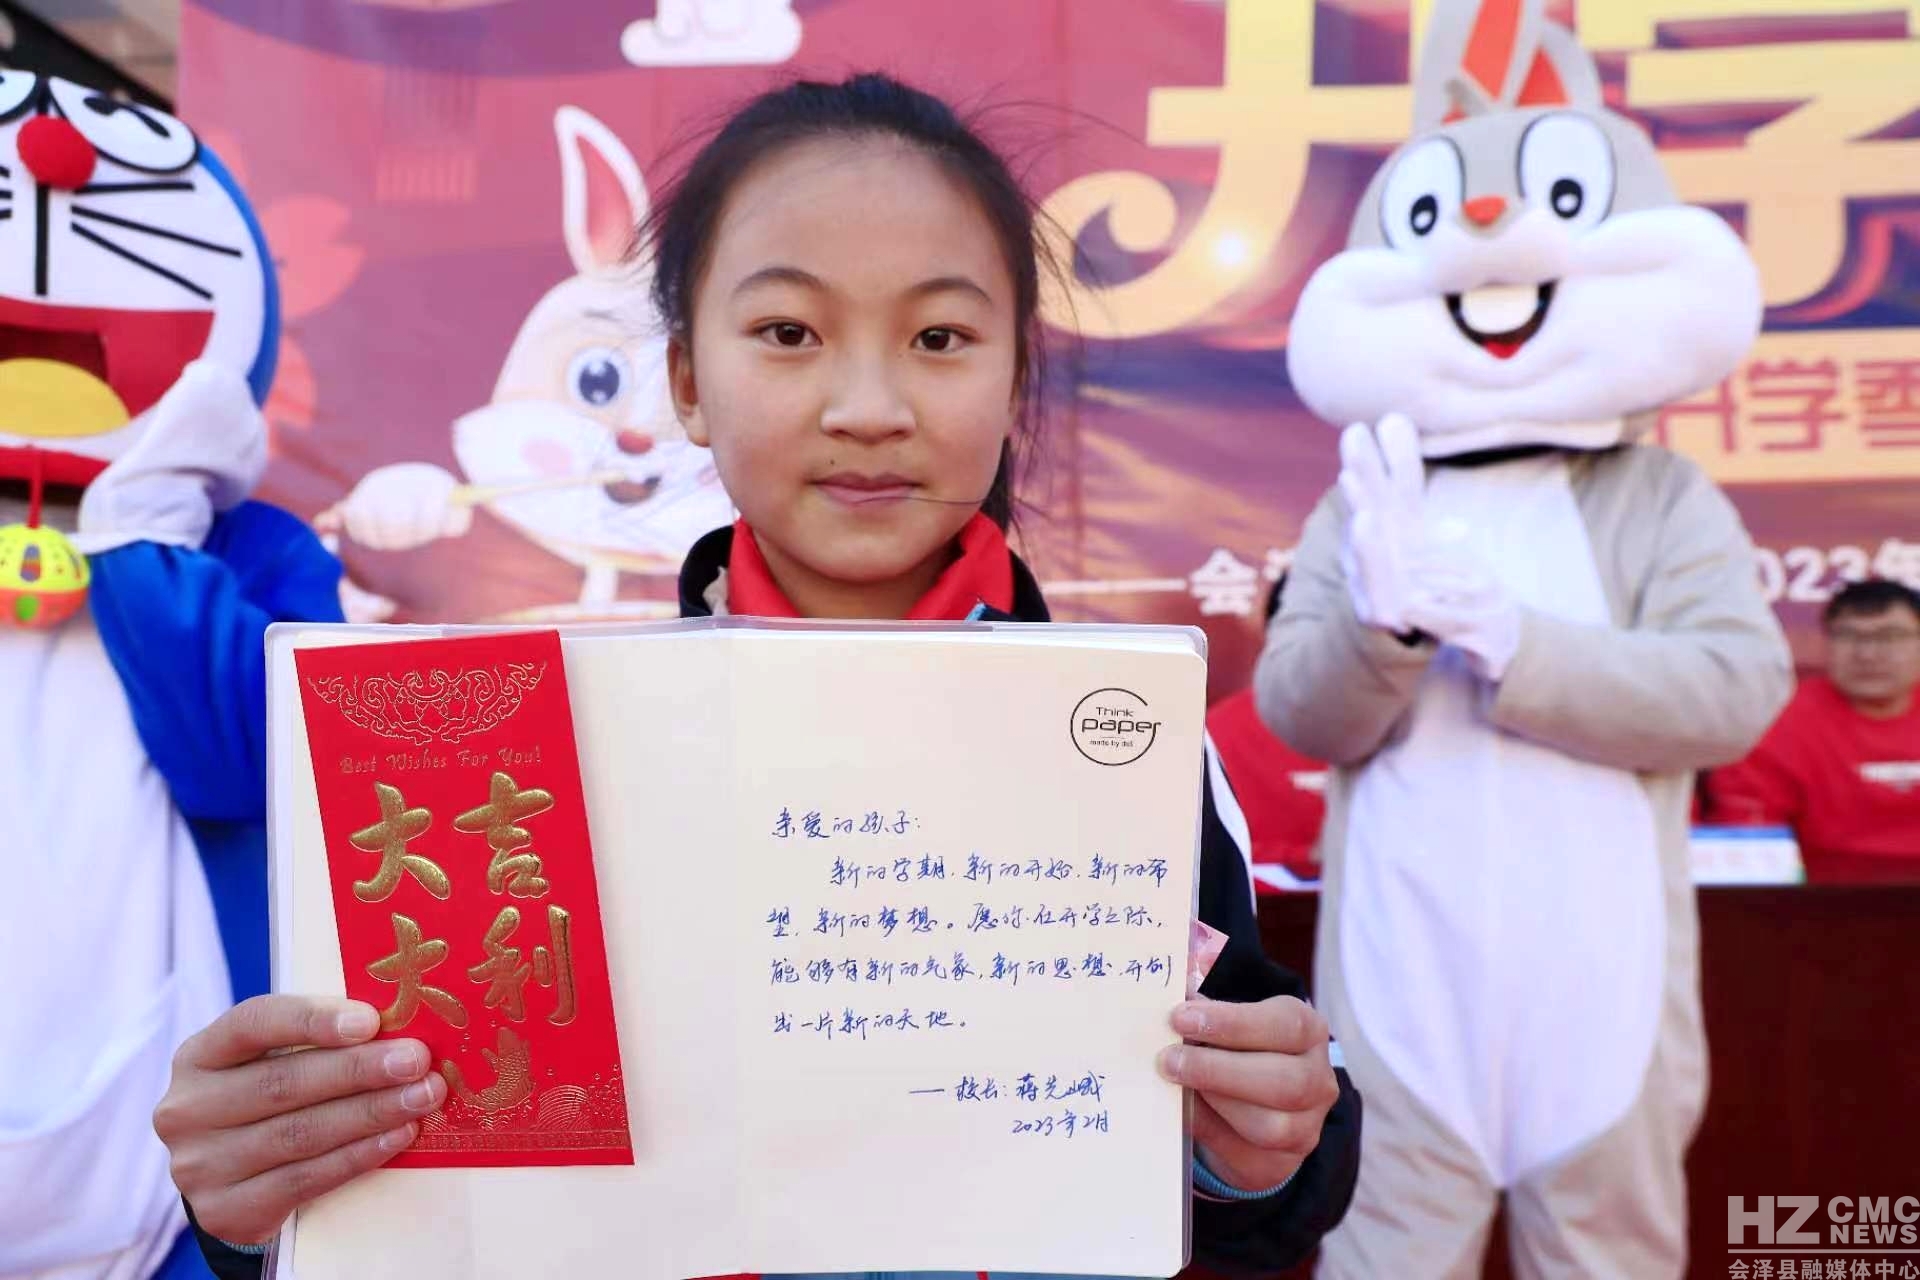 开学
开学季
2023年
Best Wishes For You!
大吉
大利
Think
paper
made by deli
亲爱的孩子:
新的学期,新的开始,新的希
望,新的梦想。愿你在开学之际,
能够有新的气象,新的思想,开创
出一片新的天地。
——校长:蒋先峨
2023年2月
HZ CMC
NEWS
会泽县融媒体中心